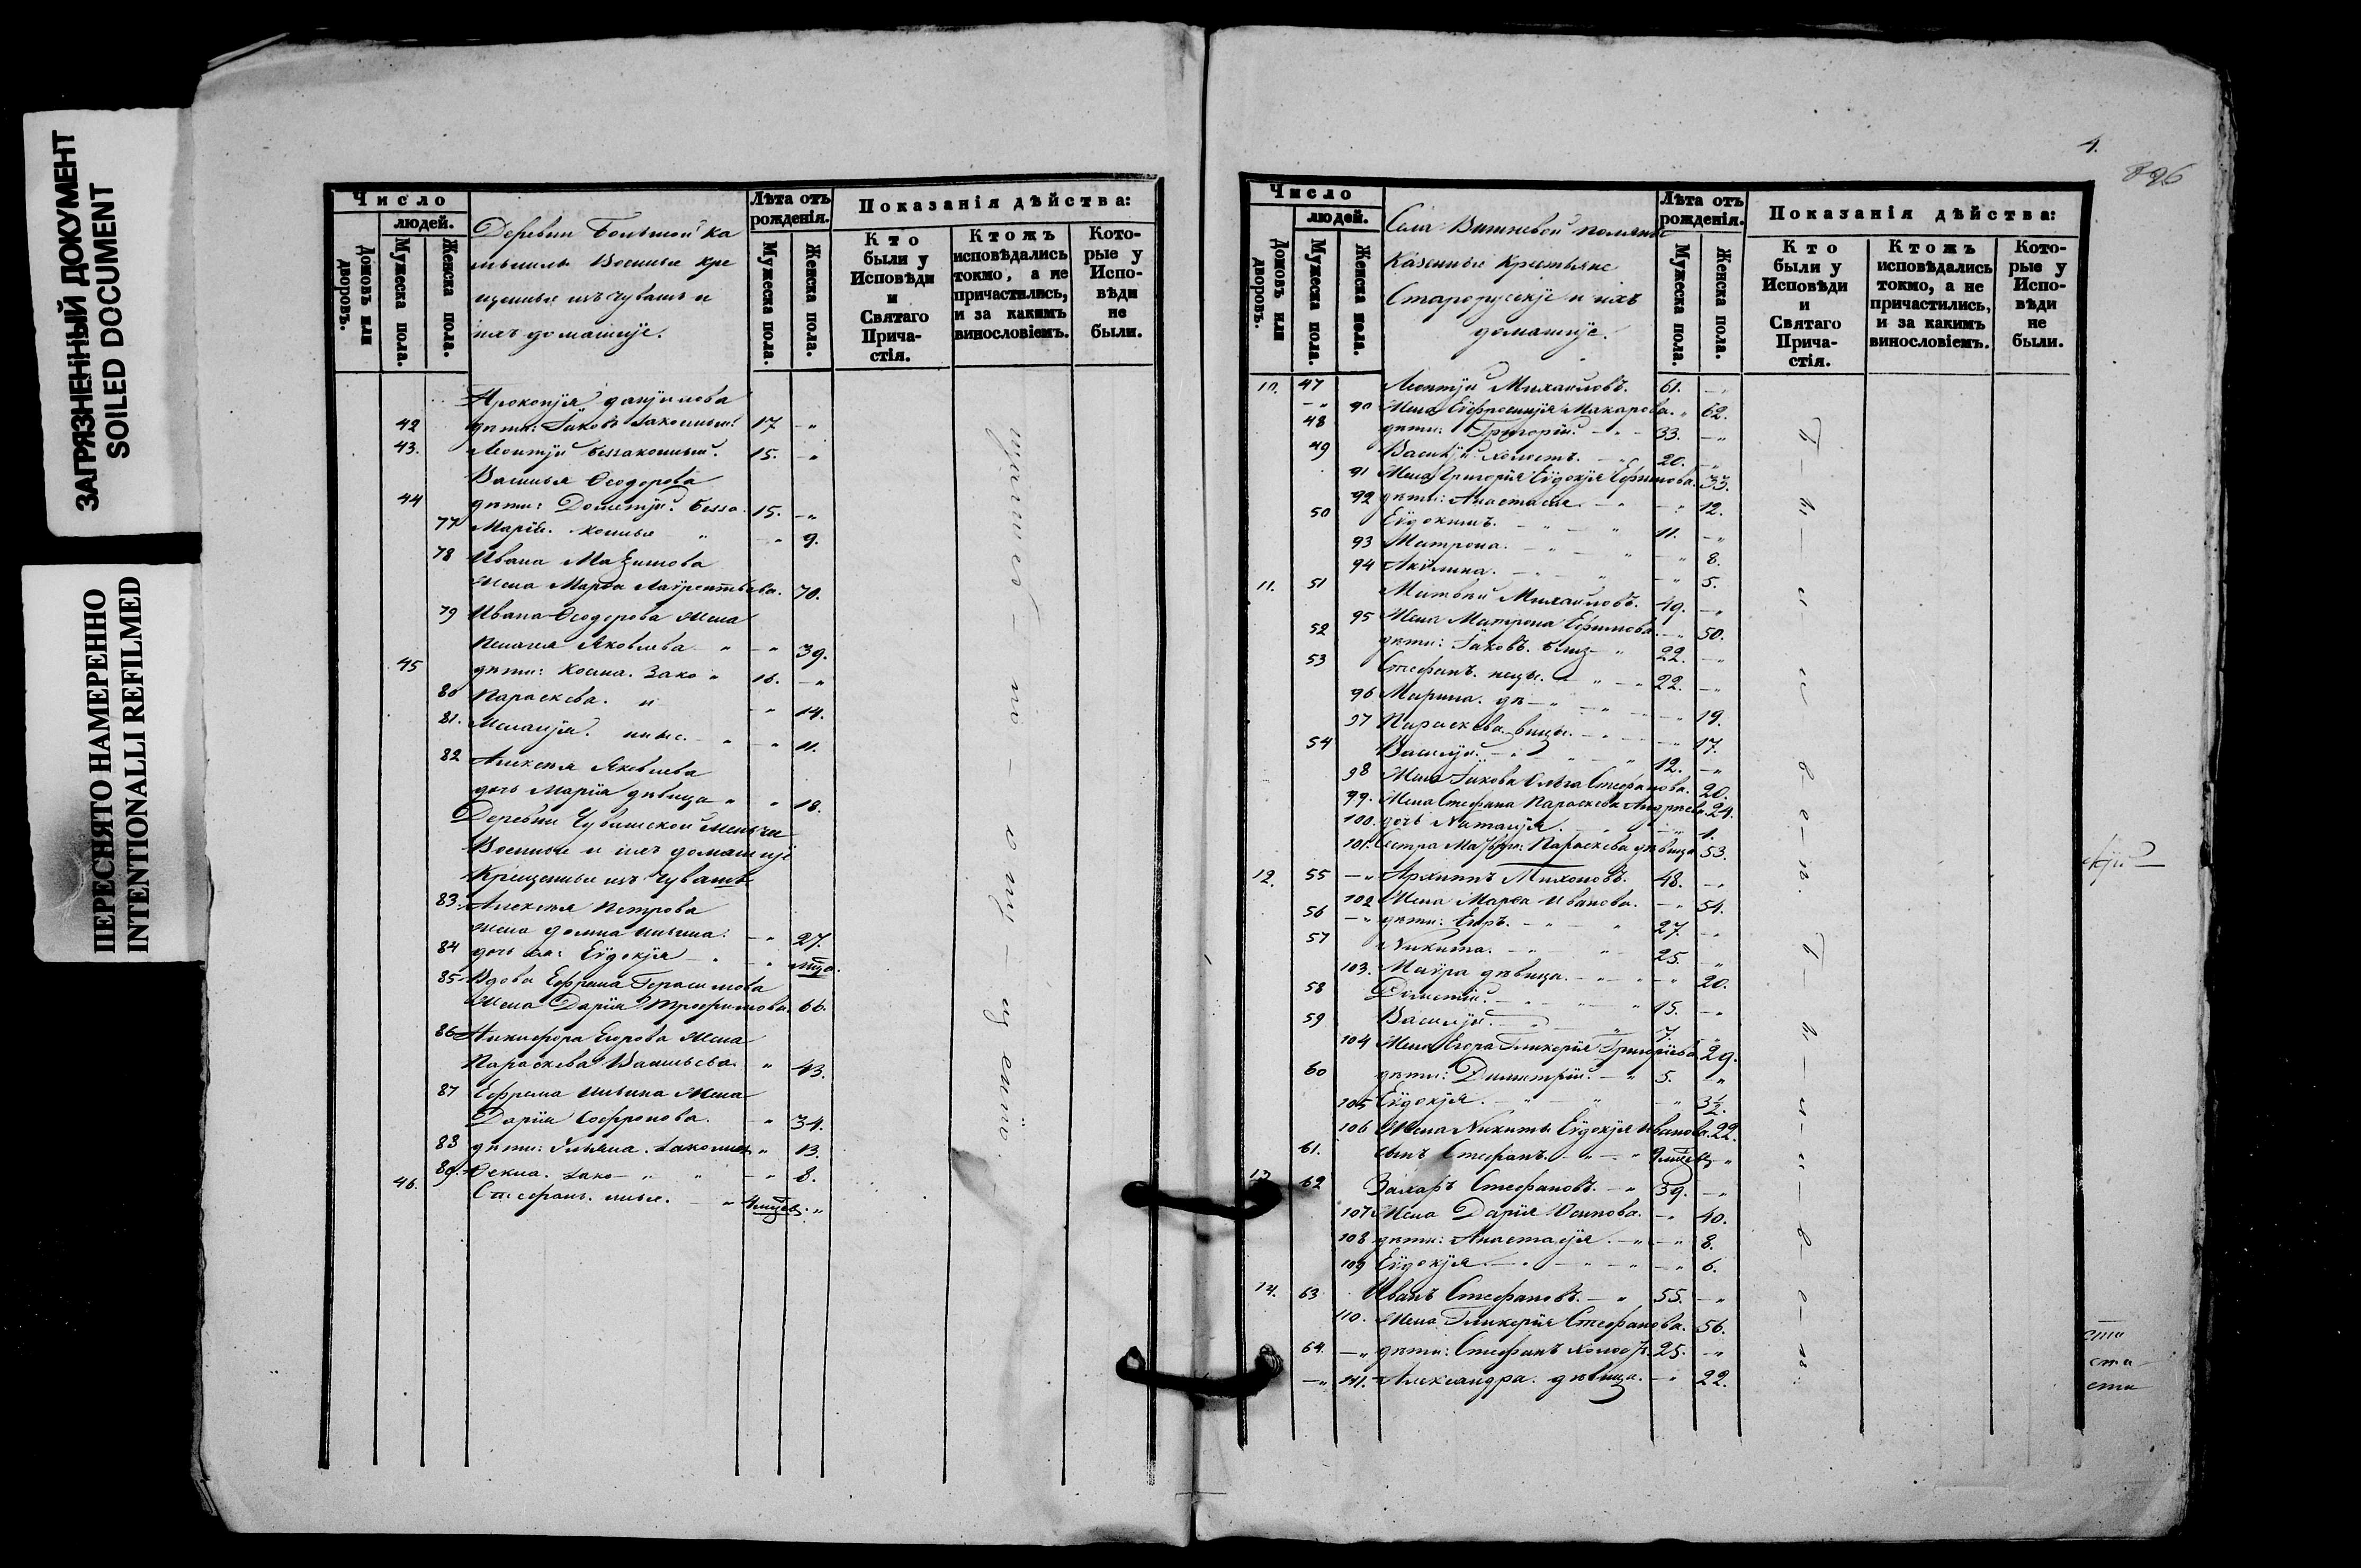 ЗАГРЯЗНЕННЫЙ ДОКУМЕНТ
SOILED DOCUMENT
ПЕРЕСНЯТО НАМЕРЕННО
INTENTIONALLI REFILMED
Число
людей.
Домовъ или дворовъ.
Мужеска пола.
Женска пола.
Деревни Большой Ка
Военные кре
щеные изъ чувашъ и
ихъ домашніе.
Лѣта отъ рожденія.
Мужеска пола.
Женска пола.
Показанія дѣйства:
Кто были у Исповѣди и Святаго Причастія.
Ктожъ исповѣдались токмо, а не причастились, и за какимъ винословіемъ.
Которые у Исповѣди не были.
Прокопія
42 дѣти: Іаковъ 17. -"
43. Леонтій беззаконный. 15. -"
Василья Ѳеодорова
44 дѣти: Дометій. Безза 15. -"
77 Марія. конные " -" 9.
78 Ивана Маѯимова
жена Марѳа Лаѵрентьева. 70.
79 Ивана Ѳеодорова жена
Пелагея Яковлева - " -" 39.
45 дѣти: Косма. Зако " 16. -"
80 Параскева. н -" 14.
81. Меланія. ные. -" -" 11.
82 Алексѣя Яковлева
дочь Марія дѣвица " " 18.
Деревни Чувашской
Военные и ихъ домашніе
Крещеные изъ Чувашъ
83. Алексѣя Петрова
жена Домна Ильина: -" 27.
84 дочь ея: Еѵдокія -" -"
85 Вдова Ефрема Герасимова
жена Дарія Трофимова. 66.
86 Никифора Егорова жена
Параскева Васильева. " 43.
87 Ефрема Ильина жена
Дарія Софронова. -" 34.
88 дѣти: Ульяна. законны " 13.
89. Ѳекла. зако -" " -" 8.
46. Стефанъ. ные. -" 4 "
4.
896
Число
людей.
Домовъ или дворовъ.
Мужеска пола.
Женска пола.
Села Вишневой поляны
Казенные Крестьяне
Старорусскіе и ихъ
домашніе.
Лѣта отъ рожденія.
Мужеска пола.
Женска пола.
Показанія дѣйства:
Кто были у Исповѣди и Святаго Причастія.
Ктожъ исповѣдались токмо, а не причастились, и за какимъ винословіемъ.
Которые у Исповѣди не были.
10. 47 Леонтій Михайловъ. 61. -"
-" 90 Жена Еѵфросинія Макарова. " 62.
48 дѣти: Григорій. -"- 33. -"
49 Василій холостъ. -" 20. -"
91 Жена Григорія Еѵдокія Ефимова. 33.
92 дѣти: Анастасія. -" -" 12.
50 Еѵдокимъ. -" -" 11. -"
93 Матрона. -" " -" 8.
94 Акилина. -" " -" 5.
11. 51 Матвѣй Михайловъ. 49. -"
95 Жена Матрона Ефимова. -" 50.
52 дѣти: Іаковъ. близ- " 22. -"
53 Стефанъ. нецы. -" -" 22. -"
96 Марина. дѣ- -" -" 19.
97 Параскева. вицы. -" -" 17.
54 Василій. -" " 12. -"
98 Жена Іакова Ольга Стефанова. 20.
99. Жена Стефана Параскева Андреева 24.
100. дочь Наталія. -" -" 1.
101. Сестра Матвѣя: Параскева дѣвица 53.
12. 55 -" Архиппъ Тихоновъ. 48. -"
102 Жена Марѳа Иванова. -" 54.
56 -" дѣти: Егоръ. -" " 27. -"
57 Никита. -" " 25. "
103. Маѵра дѣвица. -" -" 20.
58 Дометій. -" " 15. -"
59 Василій. -" " 7. "
104 Жена Егора Гликерія Григоріева. 29.
60 дѣти: Димитрій. -" 5. "
105 Еѵдокія. -" " -" 3½.
106 Жена Никиты Еѵдокія Иванова. 22.
61. сынъ Стефанъ. -" -" 9 "
13 62 Захаръ Стефановъ. -" 39. -"
107 Жена Дарія Осипова. -" 40.
108 дѣти: Анастасія. -" -" 8.
109 Еѵдокія. -" -" -" 6.
14. 63 Иванъ Стефановъ. -" 55. -"
110. Жена Гликерія Стефанова. 56.
64. -" дѣти: Стефанъ холос 25. -"
-" 111. Александра. дѣвица. -" 22.